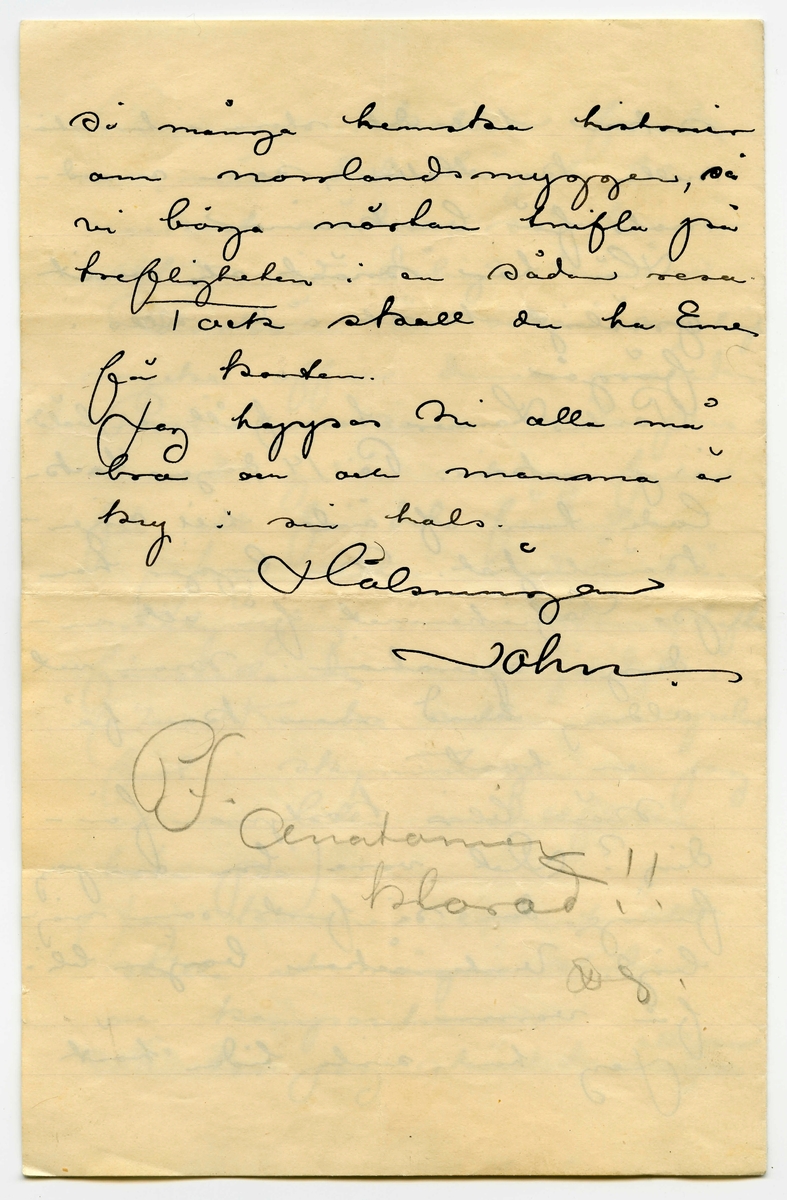 så många hemska historier
om norrlandsmyggen, så
vi börja nästan tvifla på
trefligheten i en sådan resa.
Tack skall du ha Ernes
för korten.
Jag hoppas Ni alla må
bra och mamma är
kry i sin hals.
Hälsningar
John.
P.S. Anatomien
klarad!!